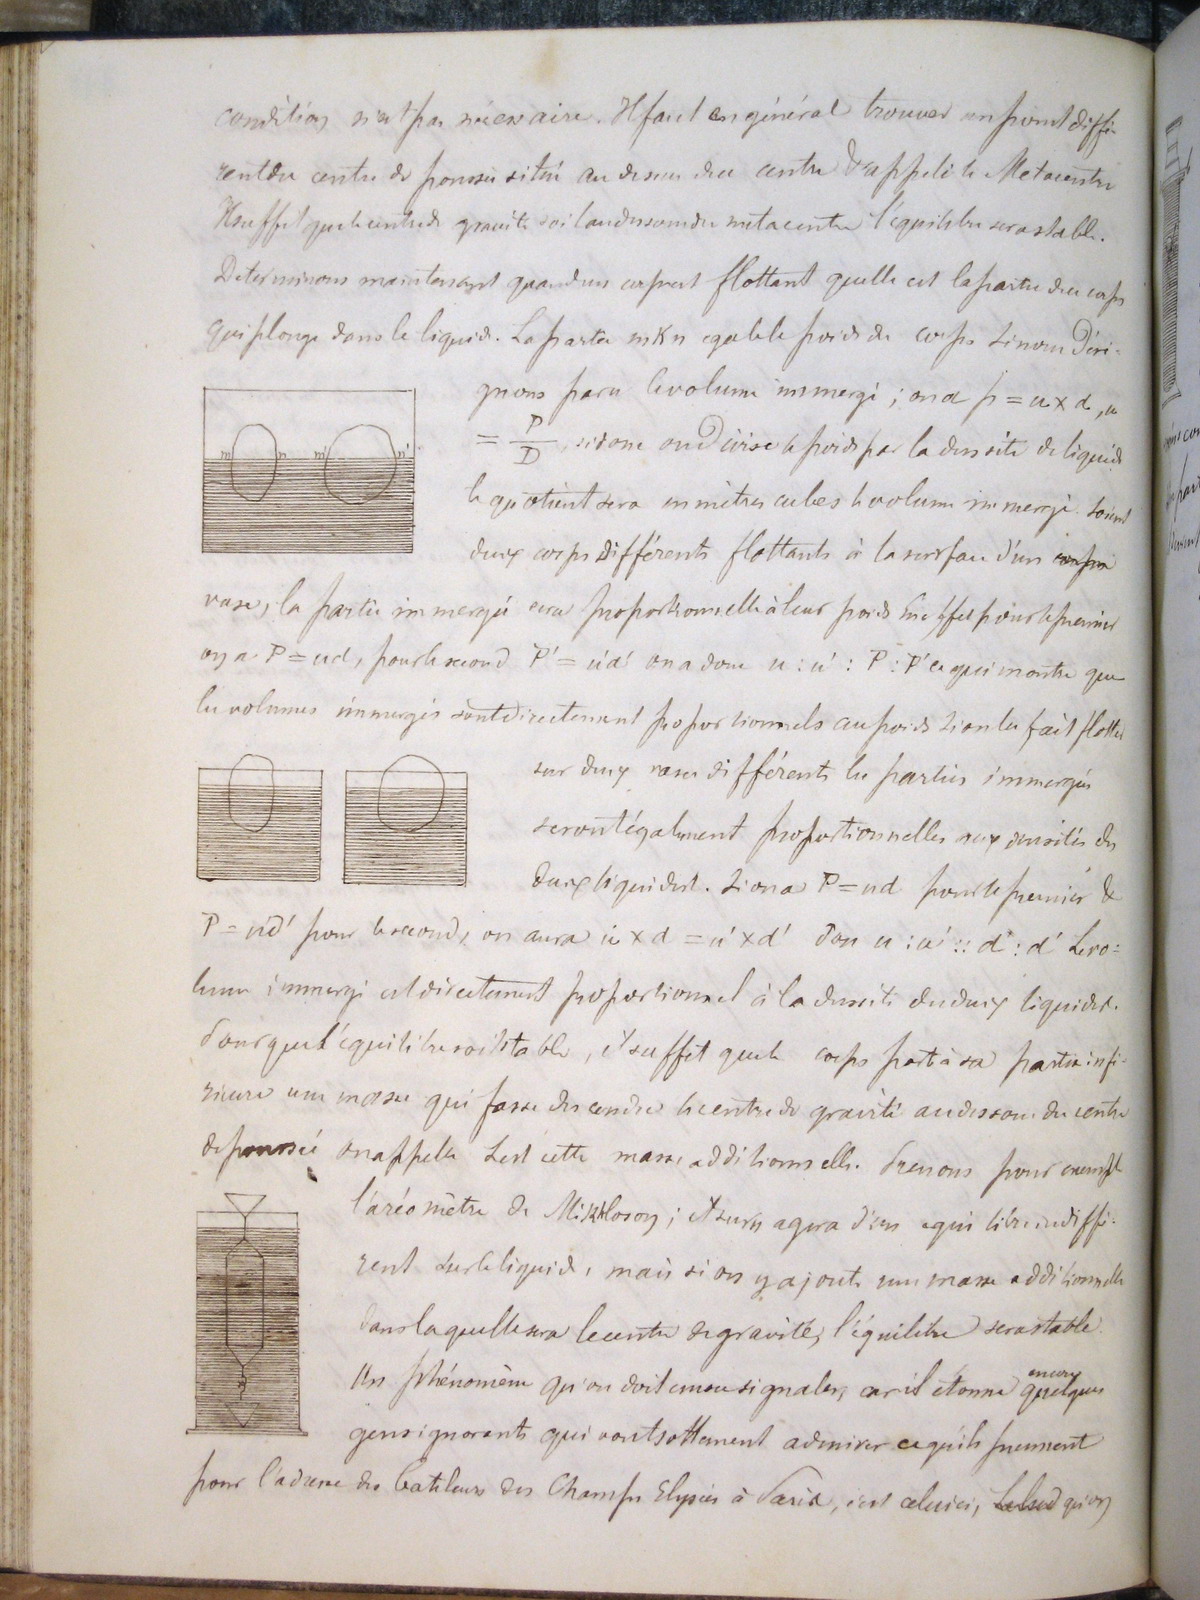 condition n'est pas nécessaire. Il faut en général trouver un point diffé-
rent du centre de poussée situé au dessus du centre & appelé le Métacentre
Il suffit que le centre de gravité soit au dessous du métacentre l'équilibre sera stable.
Determinons maintenant quand un corps est flottant quelle est la partie du corps
qui plonge dans le liquide. La partie mKn égale le poids du corps Si nous dési-
gnons par u le volume immergé ; on a p = u x d, u
= P/D, si donc on divise le poids par la densité de liquide
le quotient sera en mètres cubes le volume immergé. Soient
deux corps différents flottants à la surface d'un
vase, la partie immergée sera proportionnelle à leur poids En effet pour le premier
on a P = ud, pour le second P' = u'd' on a donc u : u' : P : P' ce qui montre que
les volumes immergés sont directement proportionnels au poids Si on les fait flotter
sur deux vases différents les parties immergées
seront également proportionnelles aux densités des
deux liquides. Si on a P = ud pour le premier &
P = u'd' pour le second, on aura u x d = u' x d' d'où u : u' :: d' : d' Le vo=
lume immergé est directement proportionnel à la densité des deux liquides.
Pour que l'équilibre soit stable, il suffit que le corps porte à sa partie infé-
rieure une masse qui fasse descendre le centre de gravité au dessous du centre
de poussée on appelle Lest cette masse additionnelle. Prenons pour exemple
l'aréomètre de ; il d'un équilibre indiffé-
rent sur le liquide, mais si on y ajoute une masse additionnelle
dans laquelle sera le centre de gravité, l'équilibre sera stable.
Un phénomène qu'on doit encore signaler, car il étonne encore quelques
gens ignorants qui vont sottement admirer ce qu'ils prennent
pour l'adresse des bateleurs des Champs Elysées à Paris, c'est celui ci, qu'on
m n m' n'